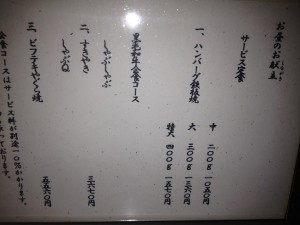 お昼のお献立
サービス定食
一、ハンバーグ鉄板焼
中 二〇〇g 一〇五〇円
大 三〇〇g 一三六〇円
特大 四〇〇g 一五七〇円
黒毛和牛会食コース
しゃぶしゃぶ
しゃぶQ
二、すきやき 三六七〇円
三、ビフテキやわらく焼 五五六〇円
会食コースはサービス料が別途一〇%かかります。
っております。